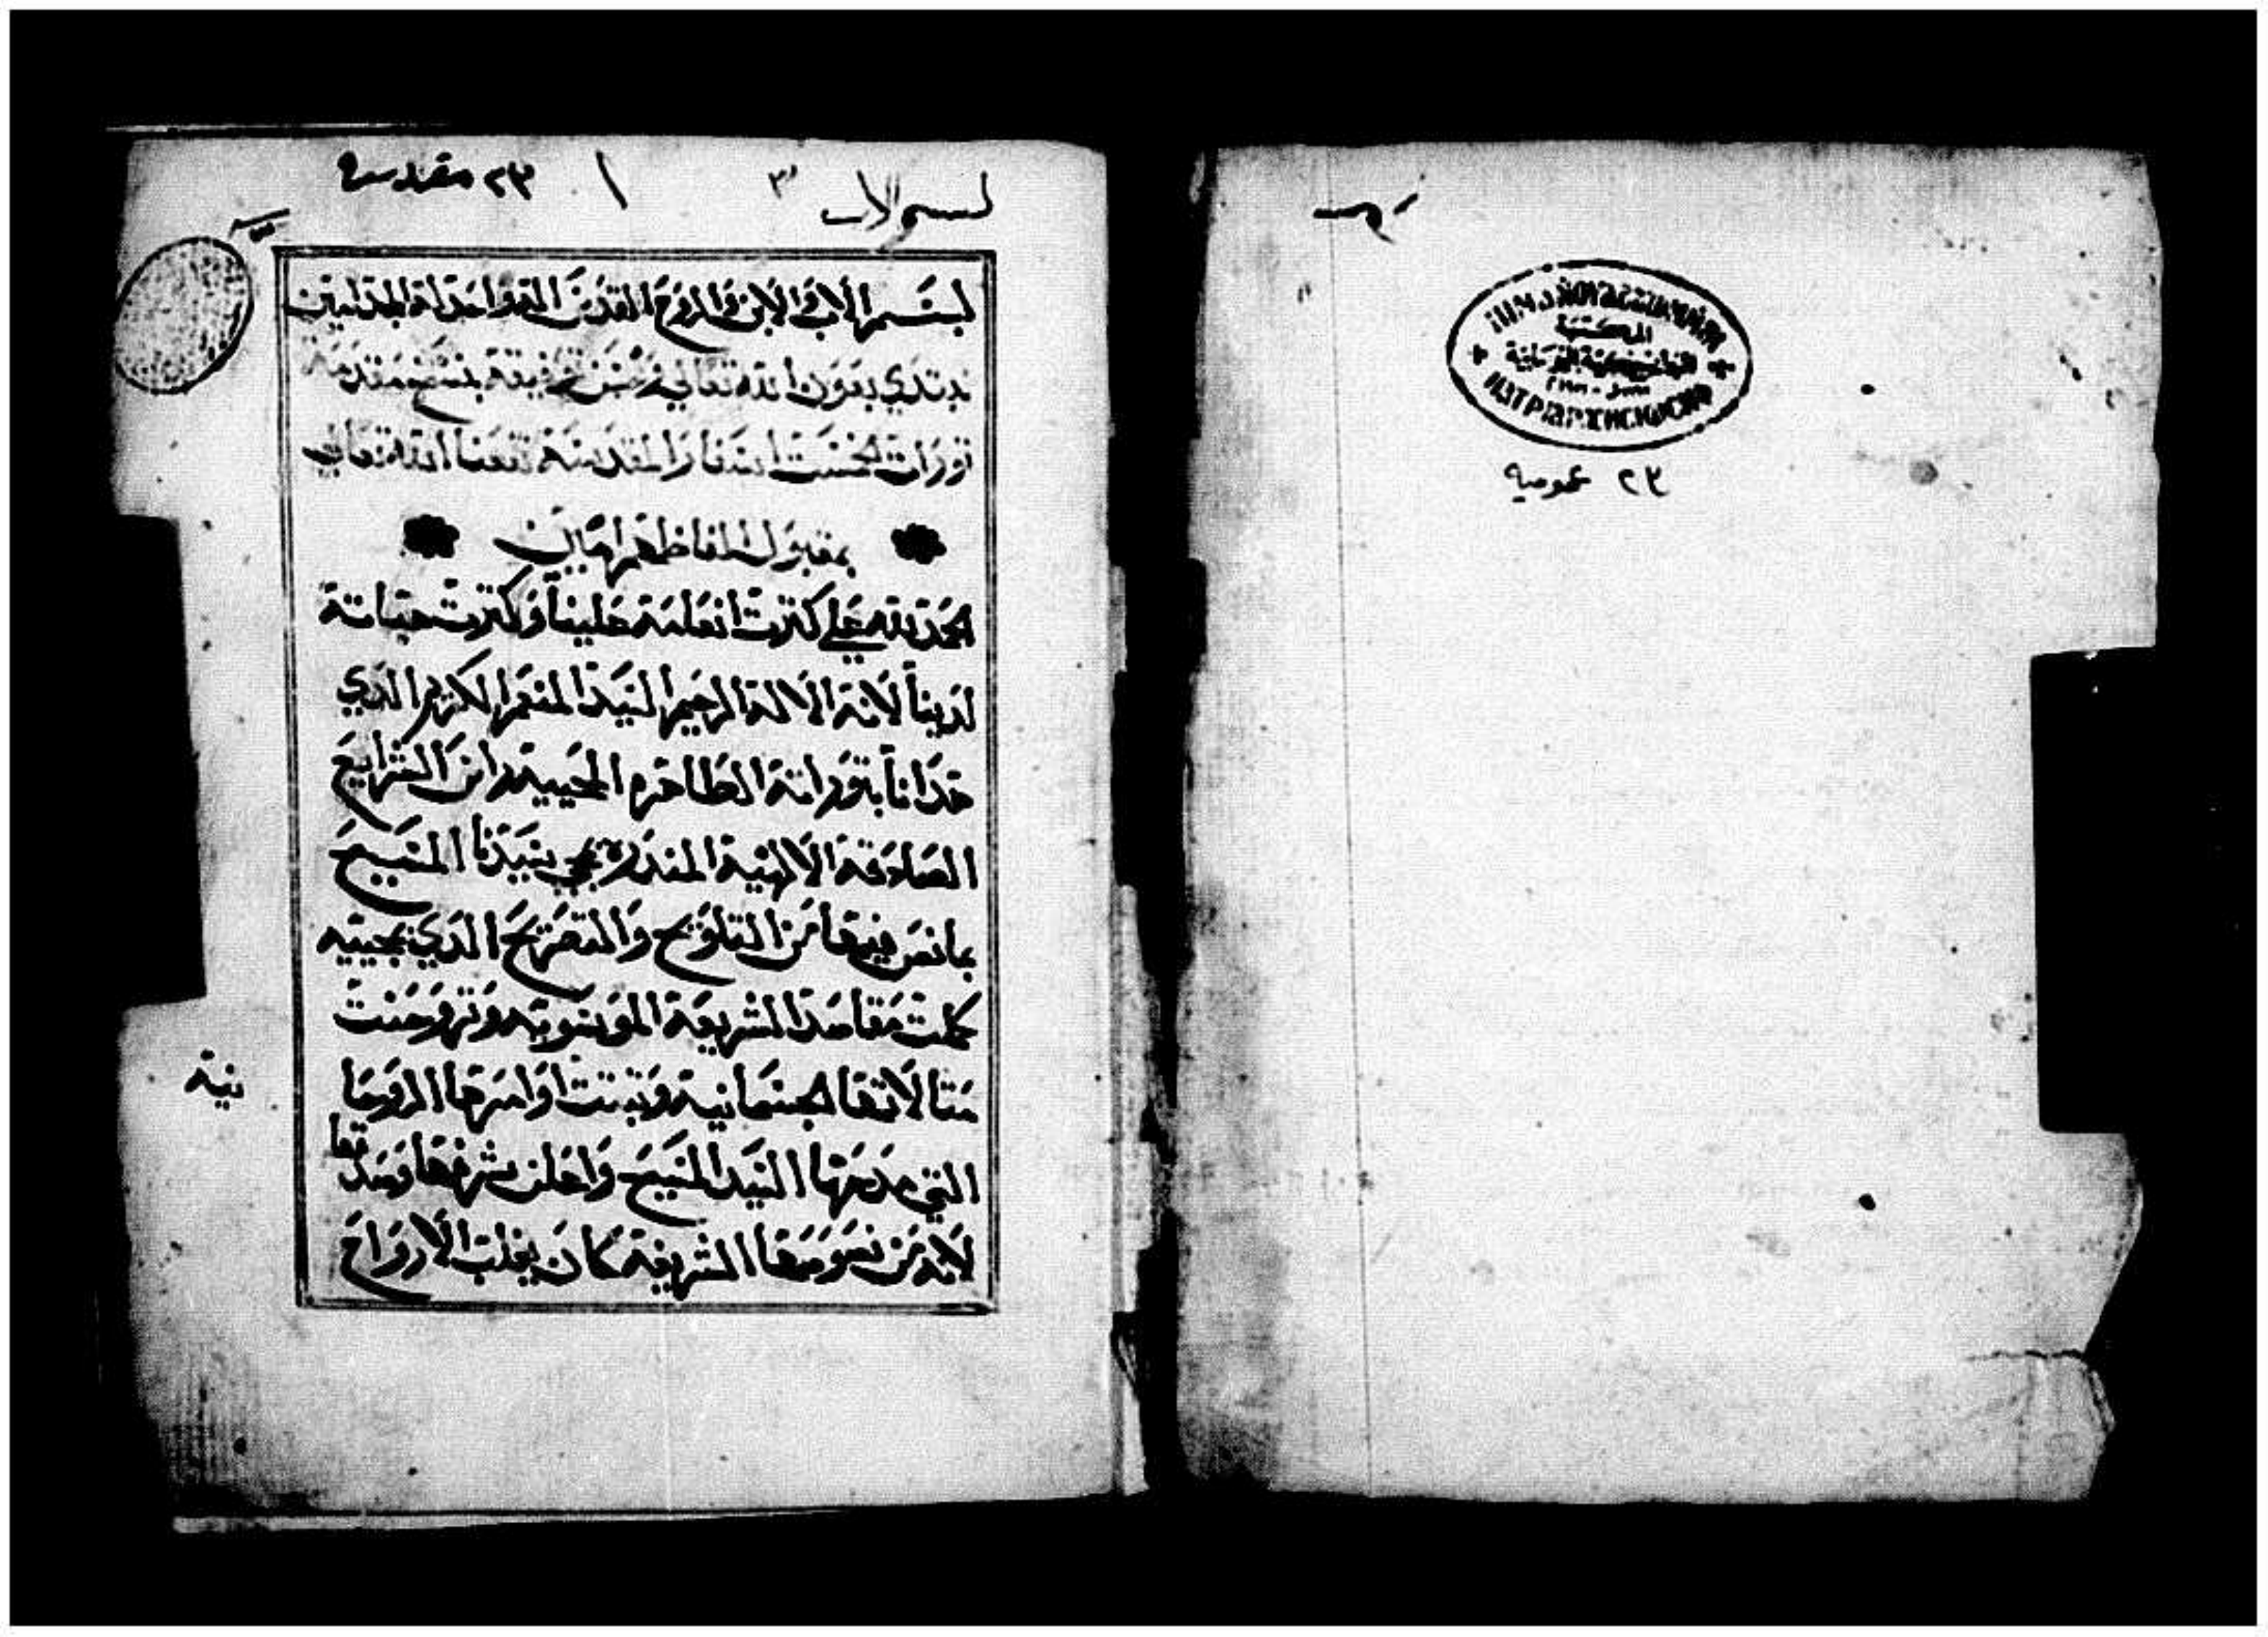 ٢٣ عمومية
المكتبة
بسم الاب
١
٢٣ مقدسة
بسم الاب والابن والروح القدس الله واحد له المجد امين
نبتدي بعون الله تعالى وحسن توفيقه بنسخ مقدمة
تورات الخمست اسفار المقدسة تنفعنا الله تعالى
بمقبول الفاظهم امين
الحمد لله علي كثرت انعامه علينا وكثرت حسناته
لدينا لانه الاله الرحيم السيد المنعم الكريم الدي
هدانا بتوراته الطاهره المحييه وان الشرايع
الصادقة الالهية المنذرة بمجي سيدنا المسيح
بما نص فيها من التلويح والتصريح الدي بمجيه
كملت مقاصد الشريعة الموسويه وتروحنت
مثالاتها الجسمانيه وثبتت اوامرها الروحا
نية
التي مدحها السيد المسيح واعلن شرفها وصدقها
لانه من نصوصها الشريفه كان يغلب الارواح